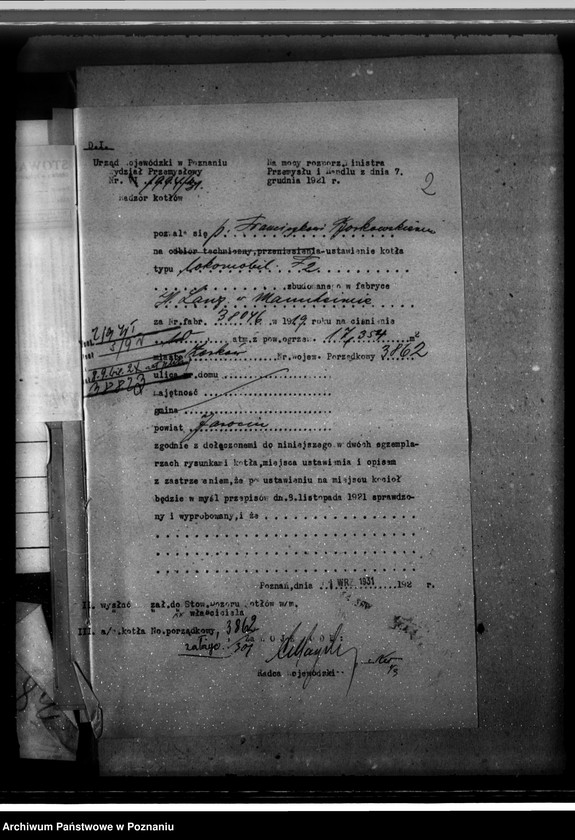 Urząd Wojewódzki w Poznaniu
Wydział Przemysłowy
Nr.
Nadzór kotłów
Na mocy rozporz. Ministra
Przemysłu i Handlu z dnia 7.
grudnia 1921 r.
2
pozwala się p. Franciszkowi
na odbiór techniczny, przeniesienie-ustawienie kotła
typu Lokomobil. F2.
zbudowanego w fabryce
H. Lanz w Mannheimie
za Nr.fabr. 38046 w 1919 roku na ciśnienie
10 atm. z pow.ogrzew. 17,354 m²
miasto Nr.wojew. Porządkowy 3862
ulica nr.domu
majętność
gmina
powiat Jarocin
zgodnie z dołączonemi do niniejszego w dwóch egzempla-
rzach rysunkami kotła, miejsca ustawienia i opisem
z zastrzeżeniem, że po ustawieniu na miejscu kocioł
będzie w myśl przepisów dn.9.listopada 1921 sprawdzo-
ny i wypróbowany, i że
Poznań, dnia 1 WRZ 1931 192 r.
II. wysłać zał. do Stow. Dozoru Kotłów w/m.
właściciela
III. a/a. kotła No. porządkowy, 3862
Radca Wojewódzki
Archiwum Państwowe w Poznaniu